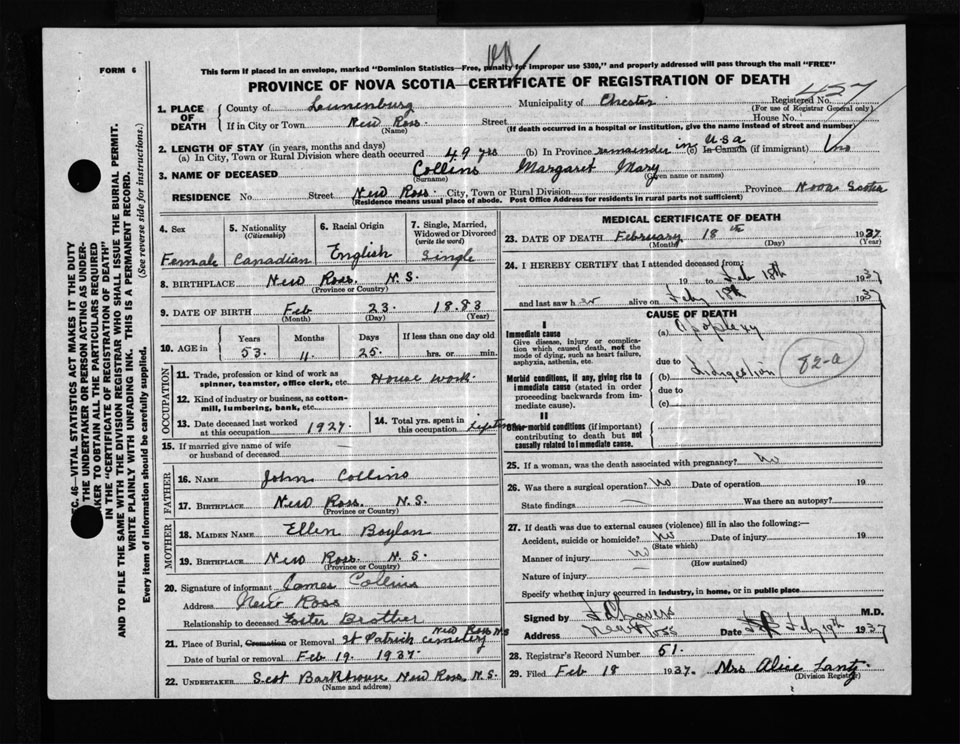 FORM 6
This form if placed in an envelope, marked "Dominion Statistics—Free, penalty for improper use $300," and properly addressed will pass through the mail "FREE"
PROVINCE OF NOVA SCOTIA—CERTIFICATE OF REGISTRATION OF DEATH
1. PLACE OF DEATH County of Lunenburg Municipality of Chester Registered No. 457
(For use of Registrar General only)
If in City or Town New Ross Street House No.
(Name) (If death occurred in a hospital or institution, give the name instead of street and number)
2. LENGTH OF STAY (in years, months and days)
(a) In City, Town or Rural Division where death occurred 49 yrs (b) In Province remainder in USA (c) In Canada (if immigrant)
3. NAME OF DECEASED Collins Margaret Mary
(Surname) (Given name or names)
RESIDENCE No. Street New Ross City, Town or Rural Division Province Nova Scotia
(Residence means usual place of abode. Post Office Address for residents in rural parts not sufficient)
4. Sex 5. Nationality (Citizenship) 6. Racial Origin 7. Single, Married, Widowed or Divorced (write the word)
Female Canadian English Single
8. BIRTHPLACE New Ross. N.S.
(Province or Country)
9. DATE OF BIRTH Feb 23. 1883
(Month) (Day) (Year)
10. AGE in Years Months Days If less than one day old
53. 11. 25. hrs. or min.
OCCUPATION
11. Trade, profession or kind of work as spinner, teamster, office clerk, etc. House work
12. Kind of industry or business, as cotton-mill, lumbering, bank, etc.
13. Date deceased last worked at this occupation 1927 14. Total yrs. spent in this occupation
15. If married give name of wife or husband of deceased
FATHER
16. NAME John Collins
17. BIRTHPLACE New Ross. N.S.
(Province or Country)
MOTHER
18. MAIDEN NAME Ellen Boylan
19. BIRTHPLACE New Ross N.S.
(Province or Country)
20. Signature of informant James Collins
Address New Ross
Relationship to deceased Foster Brother
21. Place of Burial, Cremation or Removal St Patrick cemetery New Ross N.S
Date of burial or removal Feb 19. 1937.
22. UNDERTAKER Scot Barkhouse New Ross, N.S.
(Name and address)
MEDICAL CERTIFICATE OF DEATH
23. DATE OF DEATH February 18th 1937
(Month) (Day) (Year)
24. I HEREBY CERTIFY that I attended deceased from:
19 to Feb 18th 1937
and last saw her alive on Feby 18th 1937
CAUSE OF DEATH
I
Immediate cause (a) Apoplexy
Give disease, injury or complication which caused death, not the mode of dying, such as heart failure, asphyxia, asthenia, etc.
due to
Morbid conditions, if any, giving rise to immediate cause (stated in order proceeding backwards from immediate cause). (b) 82-a
due to
(c)
II
Other morbid conditions (if important) contributing to death but not causally related to immediate cause.
25. If a woman, was the death associated with pregnancy? No
26. Was there a surgical operation? No Date of operation 19
State findings Was there an autopsy?
27. If death was due to external causes (violence) fill in also the following:—
Accident, suicide or homicide? No Date of injury 19
(State which)
Manner of injury no
(How sustained)
Nature of injury
Specify whether injury occurred in Industry, in home, or in public place
Signed by M.D.
Address New Ross Date Feby 19th 1937
28. Registrar's Record Number 51.
29. Filed Feb 18 1937. Mrs Alice Lantz.
(Division Registrar)
SEC. 46—VITAL STATISTICS ACT MAKES IT THE DUTY
THE UNDERTAKER OR PERSON ACTING AS UNDER-
KER TO OBTAIN ALL THE PARTICULARS REQUIRED
IN THE "CERTIFICATE OF REGISTRATION OF DEATH"
AND TO FILE THE SAME WITH THE DIVISION REGISTRAR WHO SHALL ISSUE THE BURIAL PERMIT.
WRITE PLAINLY WITH UNFADING INK. THIS IS A PERMANENT RECORD.
Every item of information should be carefully supplied. (See reverse side for instructions.)